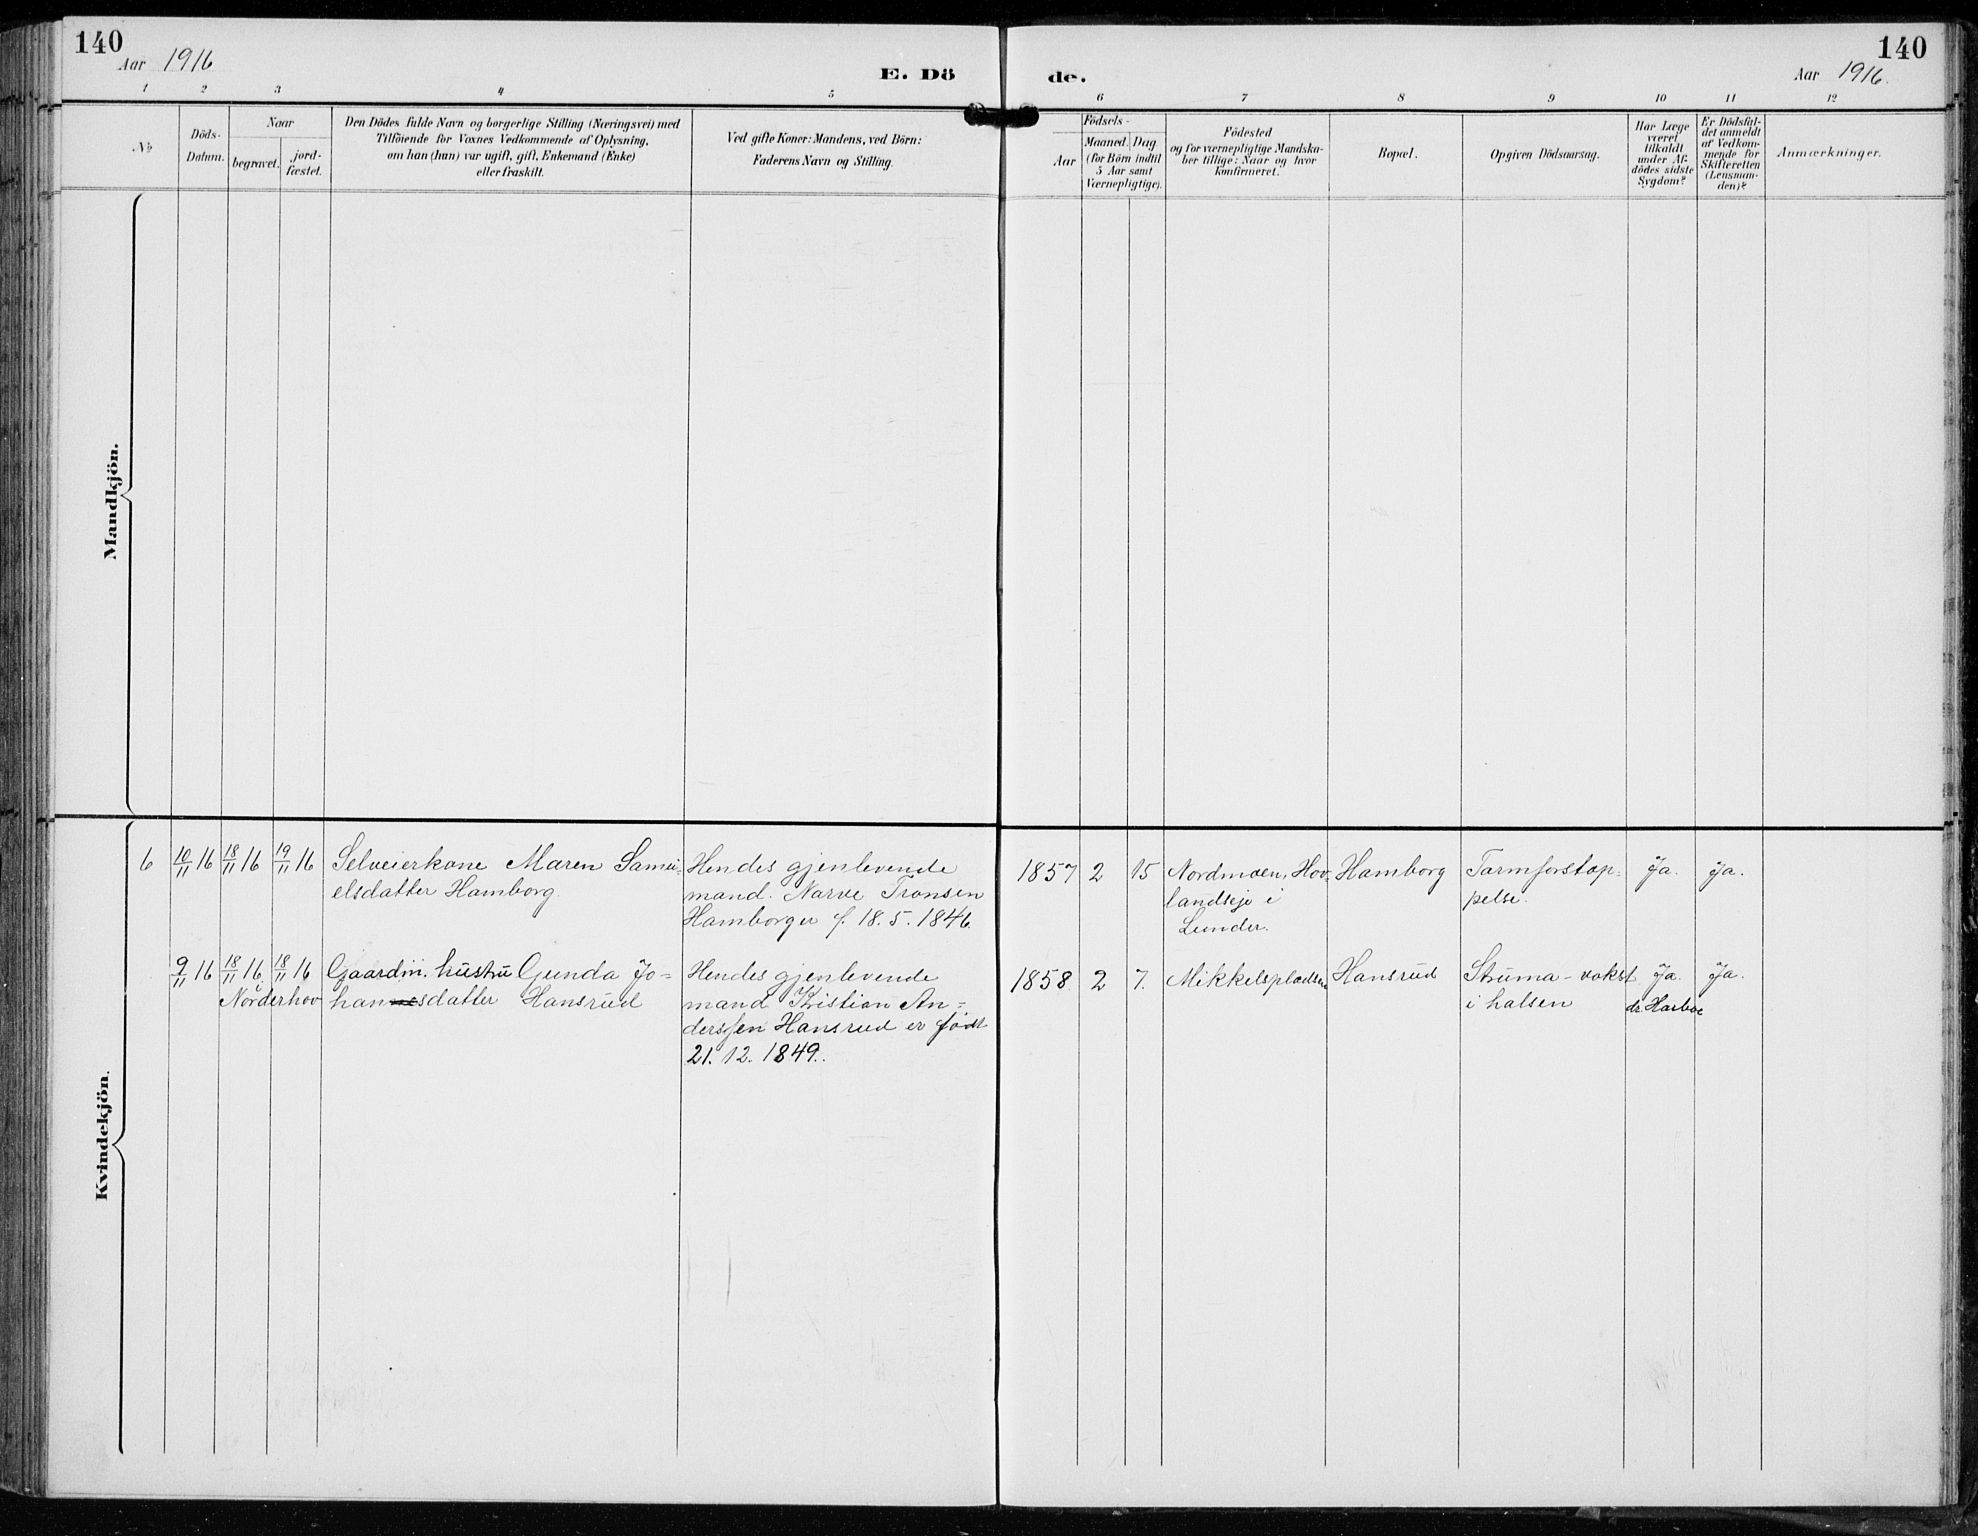 140
Aar 1916
E. Dö
de.
140
Aar 1916.
1 2 3 4 5
6 7 8 9 10 11 12
№
Döds-
Datum.
Naar
begravet.
jord-
fæstet.
Den Dödes fulde Navn og borgerlige Stilling (Næringsvei) med
Tilföiende for Voxnes Vedkommende af Oplysning,
om han (hun) var ugift, gift, Enkemand (Enke)
eller fraskilt.
Ved gifte Koner: Mandens, ved Börn:
Faderens Navn og Stilling.
Födsels-
Aar
Maaned. Dag
(for Börn indtil
5 Aar samt
Værnepligtige).
Födested
og for værnepligtige Mandska-
ber tillige: Naar og hvor
konfirmeret.
Bopæl.
Opgiven Dödsaarsag.
Har Læge
været
tilkaldt
under Af-
dödes sidste
Sygdom?
Er Dödsfal-
det anmeldt
af Vedkom-
mende for
Skifteretten
(Lensman-
den)?
Anmærkninger.
Mandkjön.
Kvindekjön.
6 10/11 16 18/11 16 19/11 16 Selveierkone Maren Samu-
elsdatter Hamborg.
Hendes gjenlevende
mand. Narve Tronsen
Hamborg er f. 18. 5. 1846.
1857 2 15 Nordmoen, Hov-
landseje i
Lunder.
Hamborg
Tarmforstop-
pelse.
Ja. Ja.
9/11 16 18/11 16 18/11 16 Gaardm. hustru Gunda Jo-
i
Norderhov hannesdatter Hansrud
Hendes gjenlevende
mand Kristian An-
derssen Hansrud er født
21. 12. 1849.
1858. 2 7. Mikkelspladsen Hansrud
Struma - vokst
i halsen
Ja. Ja.
dr. Harboe